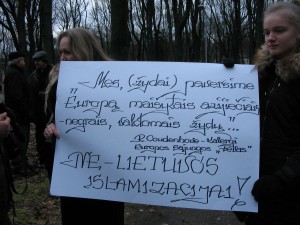 Mes, (žydai) paversime
"Europą maišytais azijiečiais
-negrais, valdomais žydų..."
R. Coudenhode - Kalergi
Europos Sąjungos "Tėvas"
NE, - LIETUVOS
ISLAMIZACIJAI!